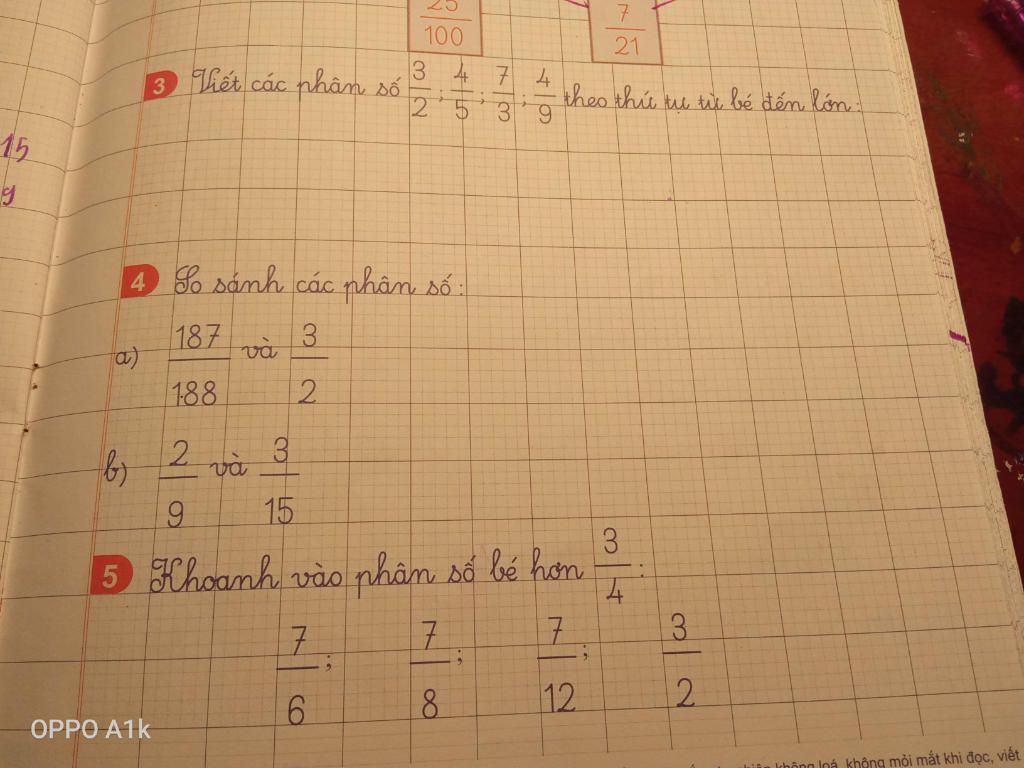 25/100
7/21
15
9
3 Viết các phân số 3/2; 4/5; 7/3; 4/9 theo thứ tự từ bé đến lớn:
4 So sánh các phân số:
a) 187/188 và 3/2
b) 2/9 và 3/15
5 Khoanh vào phân số bé hơn 3/4:
7/6; 7/8; 7/12; 3/2
OPPO A1k
không loá, không mỏi mắt khi đọc, viết